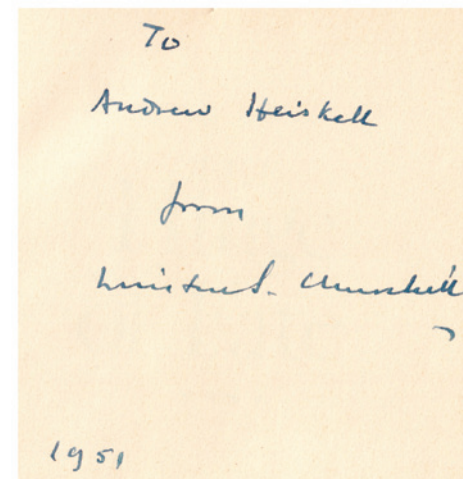 To
Andrew Heiskell
from
Winston S. Churchill
1951